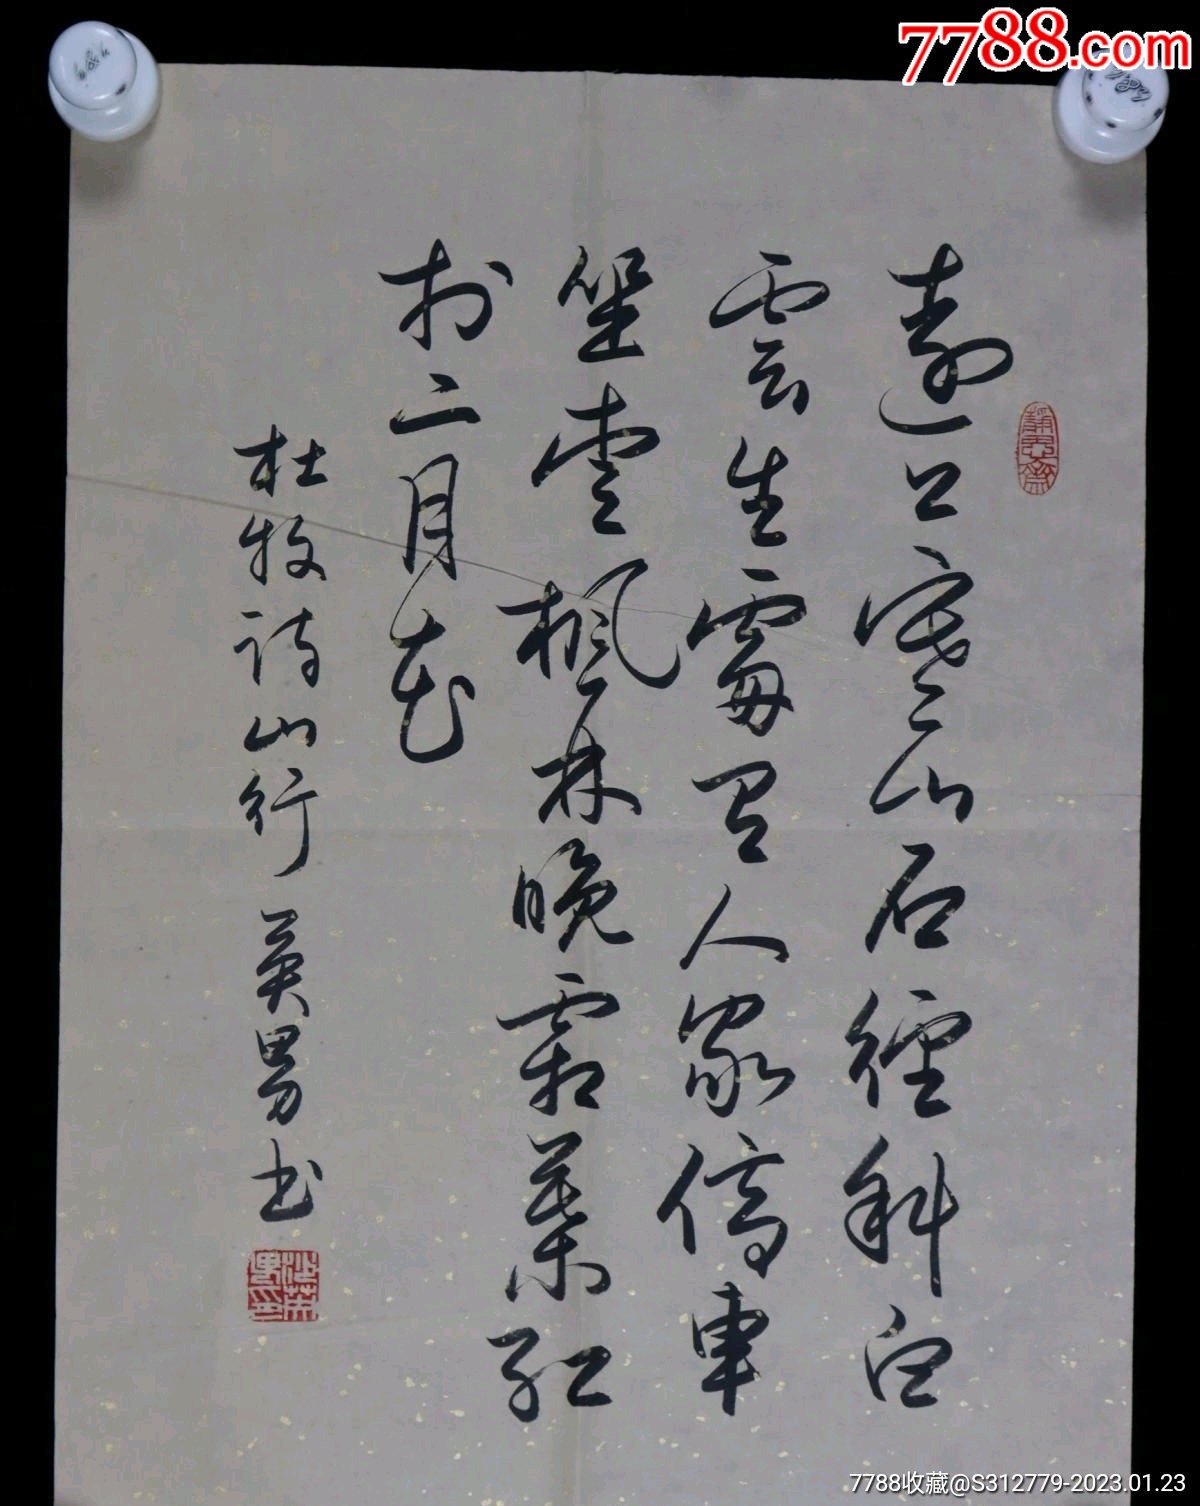 7788.com
遠上寒山石徑斜白
雲生處有人家停車
坐愛楓林晚霜葉紅
於二月花
杜牧詩山行 英男書
靜思齋
沙英男印
7788收藏@S312779-2023.01.23